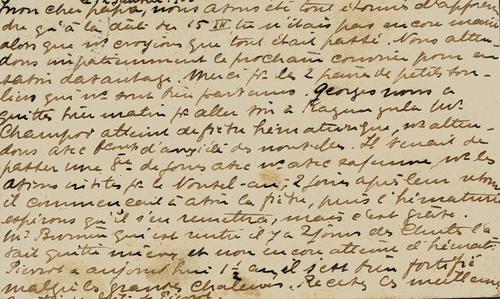 mon cher papa, nous avons été tout étonnés d'appren
dre qu'à la date du 15 XII tu n'étais pas encore marié
alors que ns croyions que tout était passé. Nous atten
dons impatiemment le prochain courrier pour en
savoir davantage. Merci pr les 2 paires de petits sou-
liers qui ns sont bien parvenus. Georges nous a
quittés hier matin pr aller voir à Kazungula Mr
Champod atteint de fièvre hématurique, ns atten-
dons avec tant d'anxiété des nouvelles. Il venait de
passer une de jours avec ns avec sa femme, ns les
avions invités pr le Nouvel-an, 2 jours après leur retour
il commençait à avoir la fièvre, puis l'hématurie
espérons qu'il s'en remettra, mais c'est grave.
Mr qui est rentré il y a 2 jours des Chutes l'a
vait quitté mieux, et non encore atteint d'hématurie
Pierrot a aujourd'hui 1 an, il s'est bien fortifié
malgré les grandes chaleurs. Recevez les meilleurs